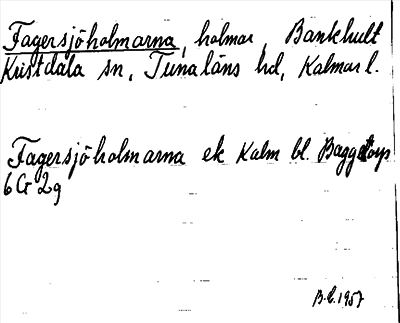 Fagersjöholmarna, holmar, Bankhult
Kristdala sn, Tunaläns hd, Kalmar l.
Fagersjöholmarna ek Kalm bl. Baggetorps
6 G 2g
B.L. 1957